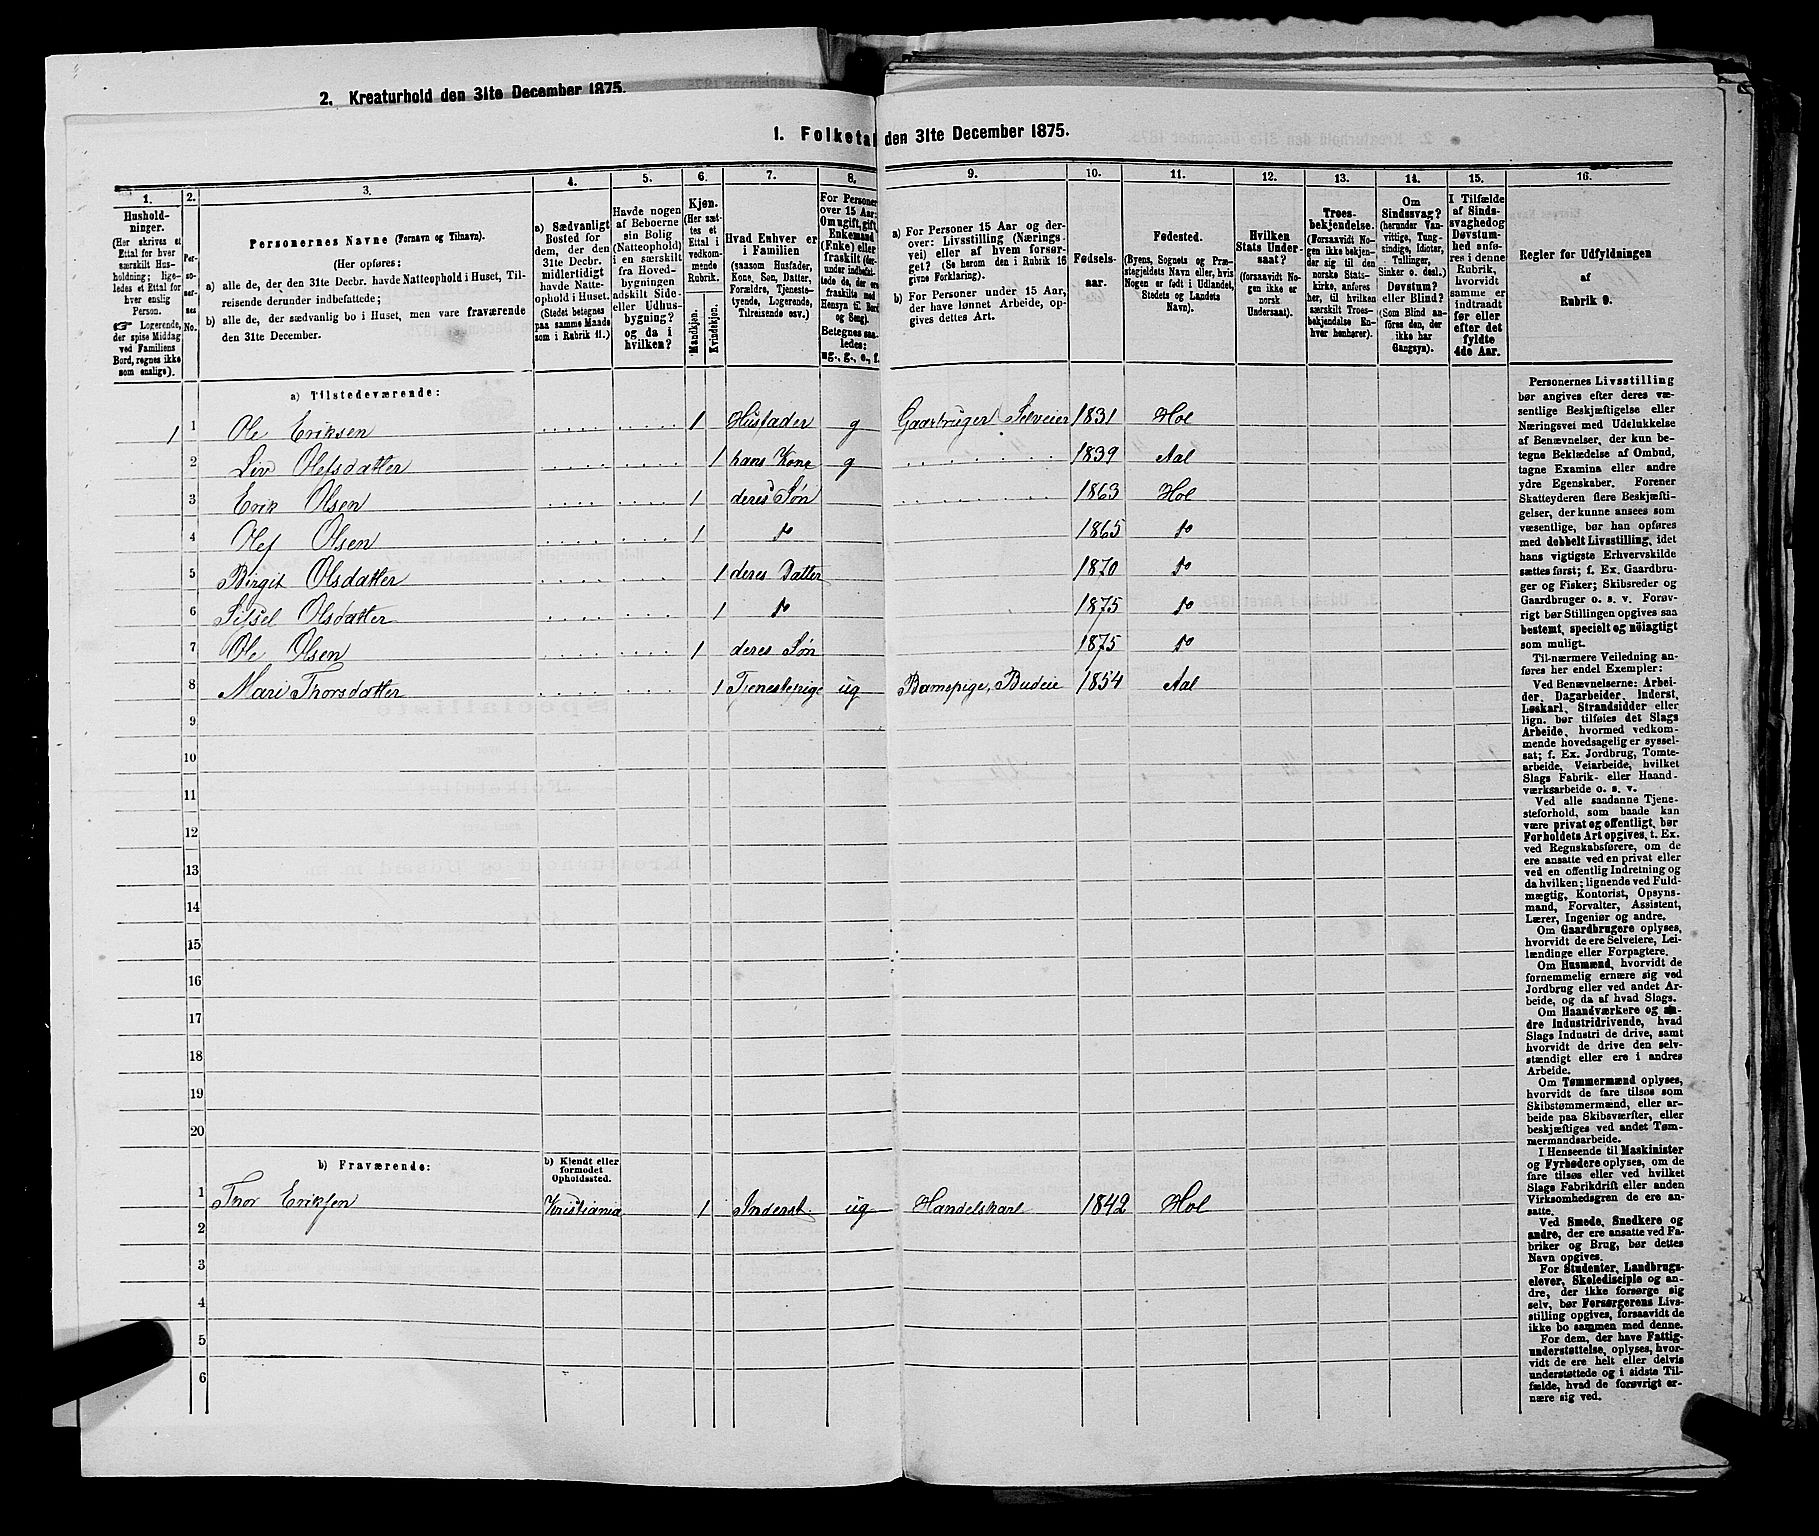 2. Kreaturhold den 31te December 1875.
1. Folketal den 31te December 1875.
1. 2. 3. 4. 5. 6. 7. 8. 9. 10. 11. 12. 13. 14. 15. 16.
Hushold-
ninger.
(Her skrives et
Ettal for hver
særskilt Hus-
holdning; lige-
ledes et Ettal for
hver enslig
Person.
☞ Logerende,
der spise Middag
ved Familiens
Bord, regnes ikke
som enslige).
Per-
so-
ner-
nes
No.
Personernes Navne (Fornavn og Tilnavn).
(Her opføres:
a) alle de, der den 31te Decbr. havde Natteophold i Huset, Til-
reisende derunder indbefattede;
b) alle de, der sædvanlig bo i Huset, men vare fraværende
den 31te December.
a) Sædvanligt
Bosted for
dem, der den
31te Decbr.
midlertidigt
havde Natte-
ophold i Huset.
(Stedet betegnes
paa samme Maade
som i Rubrik 11.)
Havde nogen
af Beboerne
sin Bolig
(Natteophold)
i en særskilt
fra Hoved-
bygningen
adskilt Side-
eller Udhus-
bygning?
og da i
hvilken?
Kjøn.
(Her sæt-
tes et
Ettal i
vedkom-
mende
Rubrik.
Mandkjøn.
Kvindekjøn.
Hvad Enhver er
i Familien
(saasom Husfader,
Kone, Søn, Datter,
Forældre, Tjeneste-
tyende, Logerende,
Tilreisende osv.)
For Personer
over 15 Aar:
Om ugift, gift,
Enkemand
(Enke) eller
fraskilt (der-
under indbefat-
tede de, der ere
fraskilte med
Hensyn til Bord
og Seng).
Betegnes saa-
ledes:
ug., g., e., f.
a) For Personer 15 Aar og der-
over: Livsstilling (Nærings-
vei) eller af hvem forsør-
get? (Se herom den i Rubrik 16
givne Forklaring).
b) For Personer under 15 Aar,
der have lønnet Arbeide, op-
gives dettes Art.
Fødsels-
aar.
Fødested.
(Byens, Sognets og Præ-
stegjeldets Navn eller, hvis
Nogen er født i Udlandet,
Stedets og Landets
Navn).
Hvilken
Stats Under-
saat?
(forsaavidt No-
gen ikke er
norsk
Undersaat).
Troes-
bekjendelse.
(Forsaavidt No-
gen ikke bekjen-
der sig til den
norske Stats-
kirke, anføres
her, til hvilken
særskilt Troes-
bekjendelse En-
hver henhører).
Om
Sindssvag?
(herunder Van-
vittige, Tung-
sindige, Idioter,
Tullinger,
Sinker o. desl.)
Døvstum?
eller Blind?
(Som Blind an-
føres den, der
ikke har
Gangsyn).
I Tilfælde
af Sinds-
svaghed og
Døvstum-
hed anfø-
res i denne
Rubrik,
hvorvidt
samme er
indtraadt
før eller
efter det
fyldte
4de Aar.
Regler for Udfyldningen
af
Rubrik 9.
a) Tilstedeværende:
1 1 Ole Eriksen 1 Husfader g Gaarbruger Selveier 1831 Hol
2 Liv Olefsdatter 1 hans Kone g 1839 Aal
3 Erik Olsen 1 deres Søn 1863 Hol
4 Olef Olsen 1 do 1865 do
5 Bergit Olsdatter 1 deres Datter 1870 do
6 Sissel Olsdatter 1 do 1875 do
7 Ole Olsen 1 deres Søn 1875 do
8 Mari Thorsdatter 1 Tjenestepige ug Barnepige, Budeie 1854 Aal
9
10
11
12
13
14
15
16
17
18
19
20
b) Fraværende:
b) Kjendt eller
formodet
Opholdssted.
1 Thor Eriksen Kristiania 1 Inderst ug Handelskarl 1842 Hol
2
3
4
5
6
Personernes Livsstilling
bør angives efter deres væ-
sentlige Beskjæftigelse eller
Næringsvei med Udelukkelse
af Benævnelser, der kun be-
tegne Beklædelse af Ombud,
tagne Examina eller andre
ydre Egenskaber. Forener
Skatteyderen flere Beskjæfti-
gelser, der kunne ansees som
væsentlige, bør han opføres
med dobbelt Livsstilling, idet
hans vigtigste Erhvervskilde
sættes først; f. Ex. Gaardbru-
ger og Fisker; Skibsreder og
Gaardbruger o. s. v. Forøv-
rigt bør Stillingen opgives saa
bestemt, specielt og nøiagtigt
som muligt.
Til nærmere Veiledning an-
føres her endel Exempler:
Ved Benævnelserne: Arbei-
der, Dagarbeider, Inderst,
Løskarl, Strandsidder eller
lign. bør tilføies det Slags
Arbeide, hvormed vedkom-
mende hovedsagelig er syssel-
sat; f. Ex. Jordbrug, Tomte-
arbeide, Veiarbeide, hvilket
Slags Fabrik- eller Haand-
værksarbeide o. s. v.
Ved alle saadanne Tjene-
steforhold, som baade kan
være privat og offentligt, bør
Forholdets Art opgives, t. Ex.
ved Regnskabsførere, om de
ere ansatte ved en privat eller
ved en offentlig Indretning og
da hvilken; lignende ved Fuld-
mægtig, Kontorist, Opsyns-
mand, Forvalter, Assistent,
Lærer, Ingeniør og andre.
Om Gaardbrugere oplyses,
hvorvidt de ere Selveiere, Lei-
lændinge eller Forpagtere.
Om Husmænd, hvorvidt de
fornemmelig ernære sig ved
Jordbrug eller ved andet Ar-
beide, og da af hvad Slags.
Om Haandværkere og an-
dre Industridrivende, hvad
Slags Industri de drive, samt
hvorvidt de drive den selv-
stændigt eller ere i andres
Arbeide.
Om Tømmermænd oplyses,
hvorvidt de fare tilsøs som
Skibstømmermænd, eller ar-
beide paa Skibsværfter, eller
beskjæftiges ved andet Tøm-
mermandsarbeide.
I Henseende til Maskinister
og Fyrbødere oplyses, om de
fare tilsøs eller ved hvilket
Slags Fabrikdrift eller anden
Virksomhedsgren de ere an-
satte.
Ved Smede, Snedkere og
andre, der ere ansatte ved Fa-
briker og Brug, bør dettes
Navn opgives.
For Studenter, Landbrugs-
elever, Skoledisciple og an-
dre, der ikke forsørge sig
selv, bør Forsørgerens Livs-
stilling opgives, forsaavidt de
ikke bo sammen med denne.
For dem, der have Fattig-
understøttelse, oplyses, hvor-
vidt de ere helt eller delvis
understøttede og i sidste Til-
fælde, hvad de forøvrigt er-
nære sig ved.